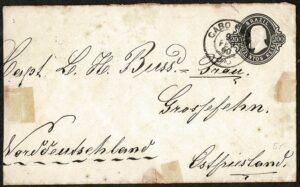 CABO
BRAZIL
Capt. L. H. Buss-
Grossefehn.
Norddeutschland
Ostfriesland.